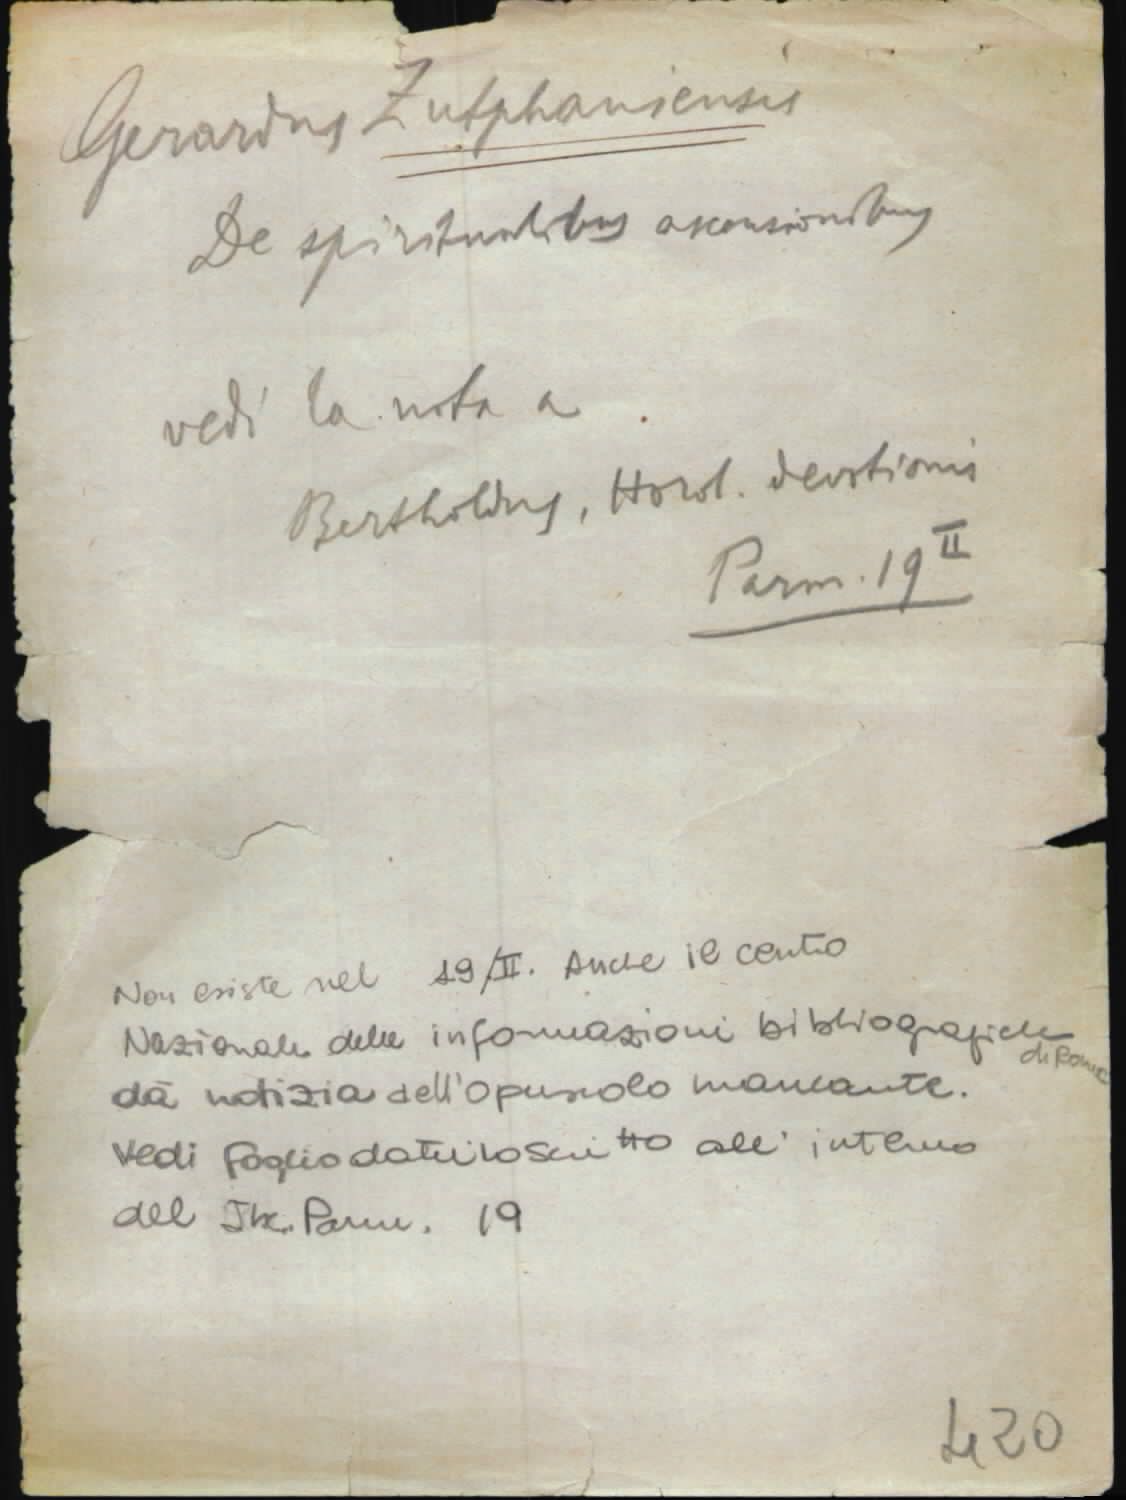 Gerardus Zutphaniensis
De spiritualibus ascensionibus
vedi la nota a
Bertholdus, Horol. devotionis
Parm. 19 II
Non esiste nel 19/II. Anche il centro
Nazionale delle informazioni bibliografiche
di Roma
dà notizia dell'opuscolo mancante.
Vedi foglio dattiloscritto all'interno
del Inc. Parm. 19
420